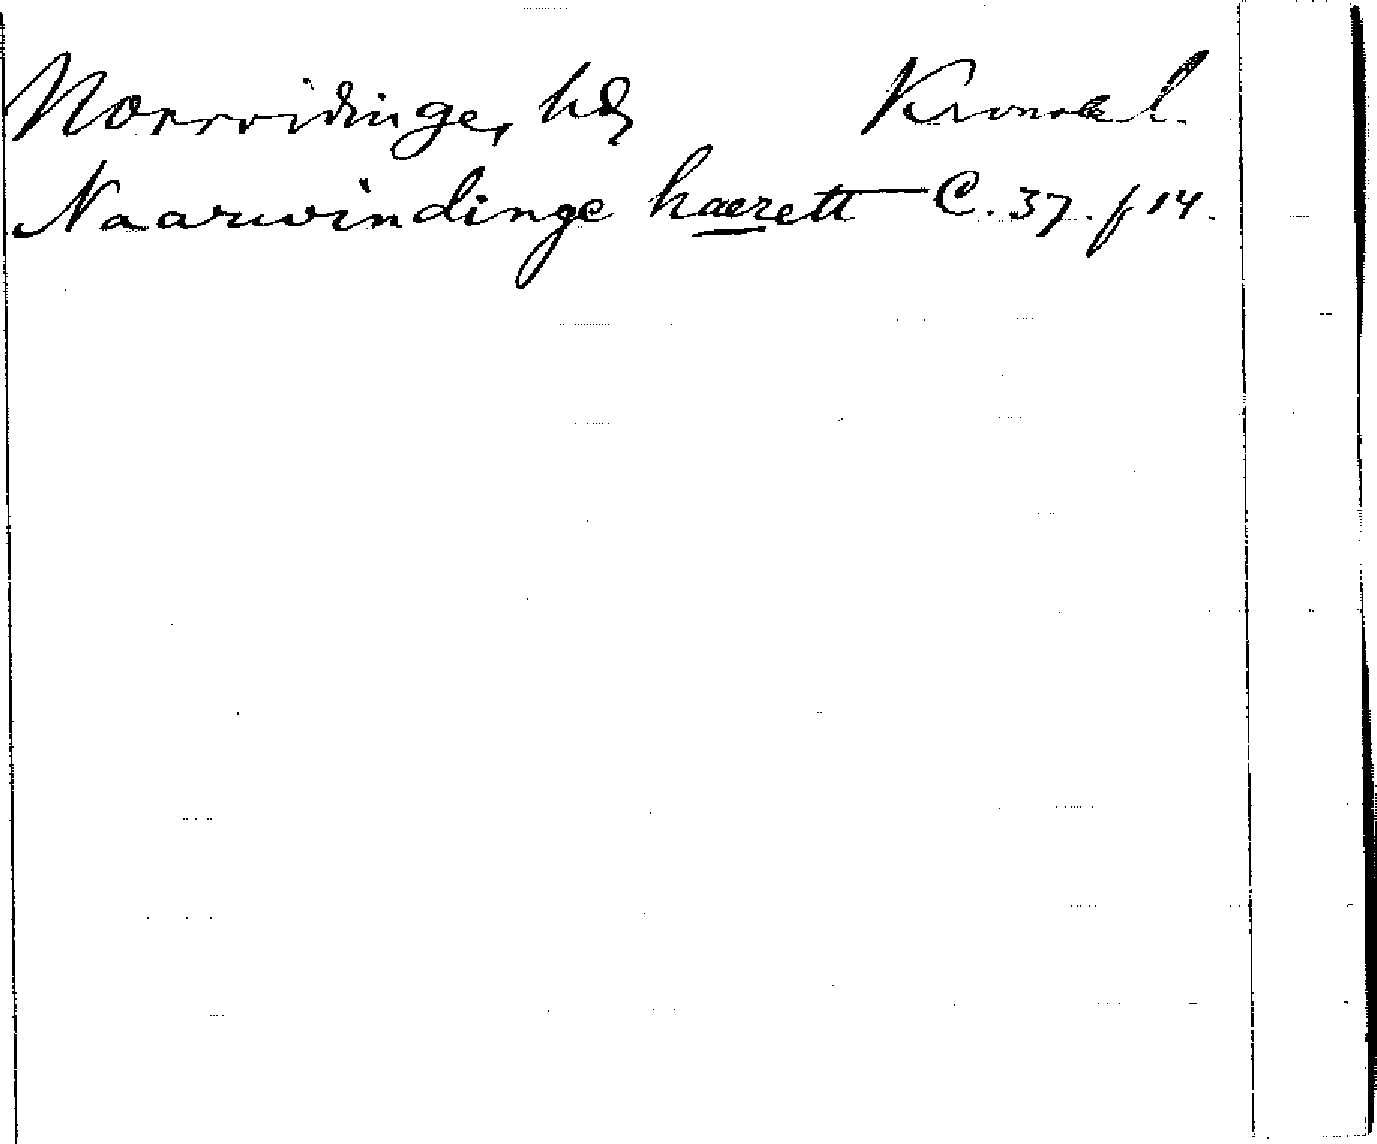 Norrvidinge, hd Kronob l.
Naarwindinge haerett C. 37. f 14.